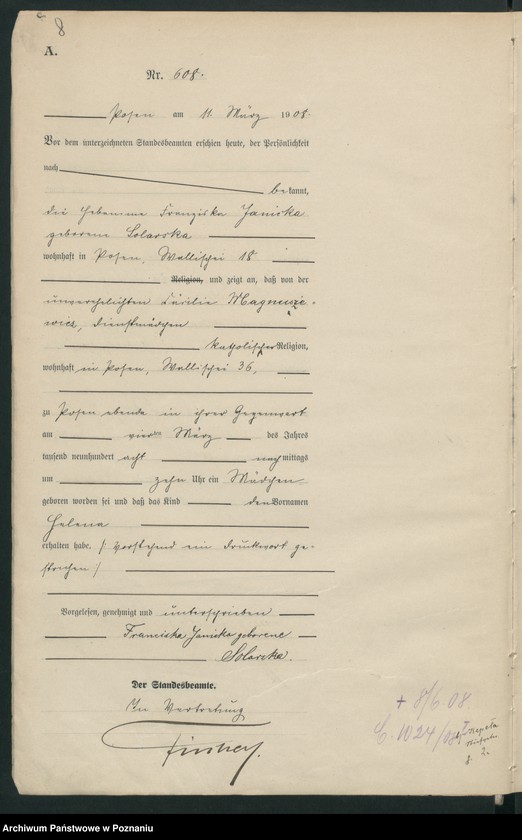 8
A.
Nr. 608.
Posen am 11. März 1908.
Vor dem unterzeichneten Standesbeamten erschien heute, der Persönlichkeit
nach
bekannt,
die Hebamme Franziska Janiska
geborene Solarska
wohnhaft in Posen, Wallischei 18
Religion, und zeigt an, daß von der
unverehelichten Cäcilie Magnusze-
wicz, Dienstmädchen
katholischer Religion,
wohnhaft in Posen, Wallischei 36,
zu Posen ebenda in ihrer Gegenwart
am vierten März des Jahres
tausend neunhundert acht nachmittags
um zehn Uhr ein Mädchen
geboren worden sei und daß das Kind den Vornamen
Helena
erhalten habe. /: Vorstehend ein Druckwort ge-
strichen :/
Vorgelesen, genehmigt und unterschrieben
Franciska Janiska geborene
Solarska.
Der Standesbeamte.
In Vertretung
+ 8/6 08.
Archiwum Państwowe w Poznaniu